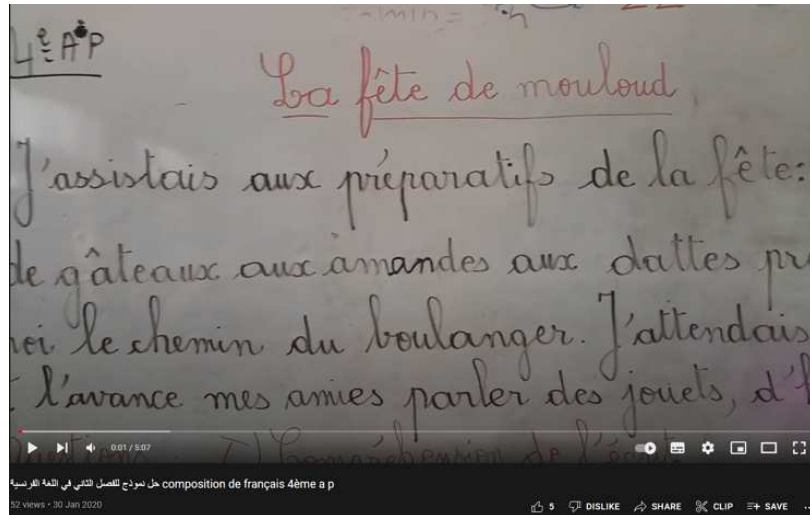 4e AP
La fête de mouloud
J'assistais aux préparatifs de la fête:
de gâteaux aux amandes aux dattes pr
le chemin du boulanger. J'attendais
l'avance mes amies parler des jouets, d'
I) Compréhension de l'écrit
0:01 / 5:07
حل نموذج للفصل الثاني في اللغة الفرنسية composition de français 4ème a p
52 views • 30 Jan 2020
5 DISLIKE SHARE CLIP SAVE